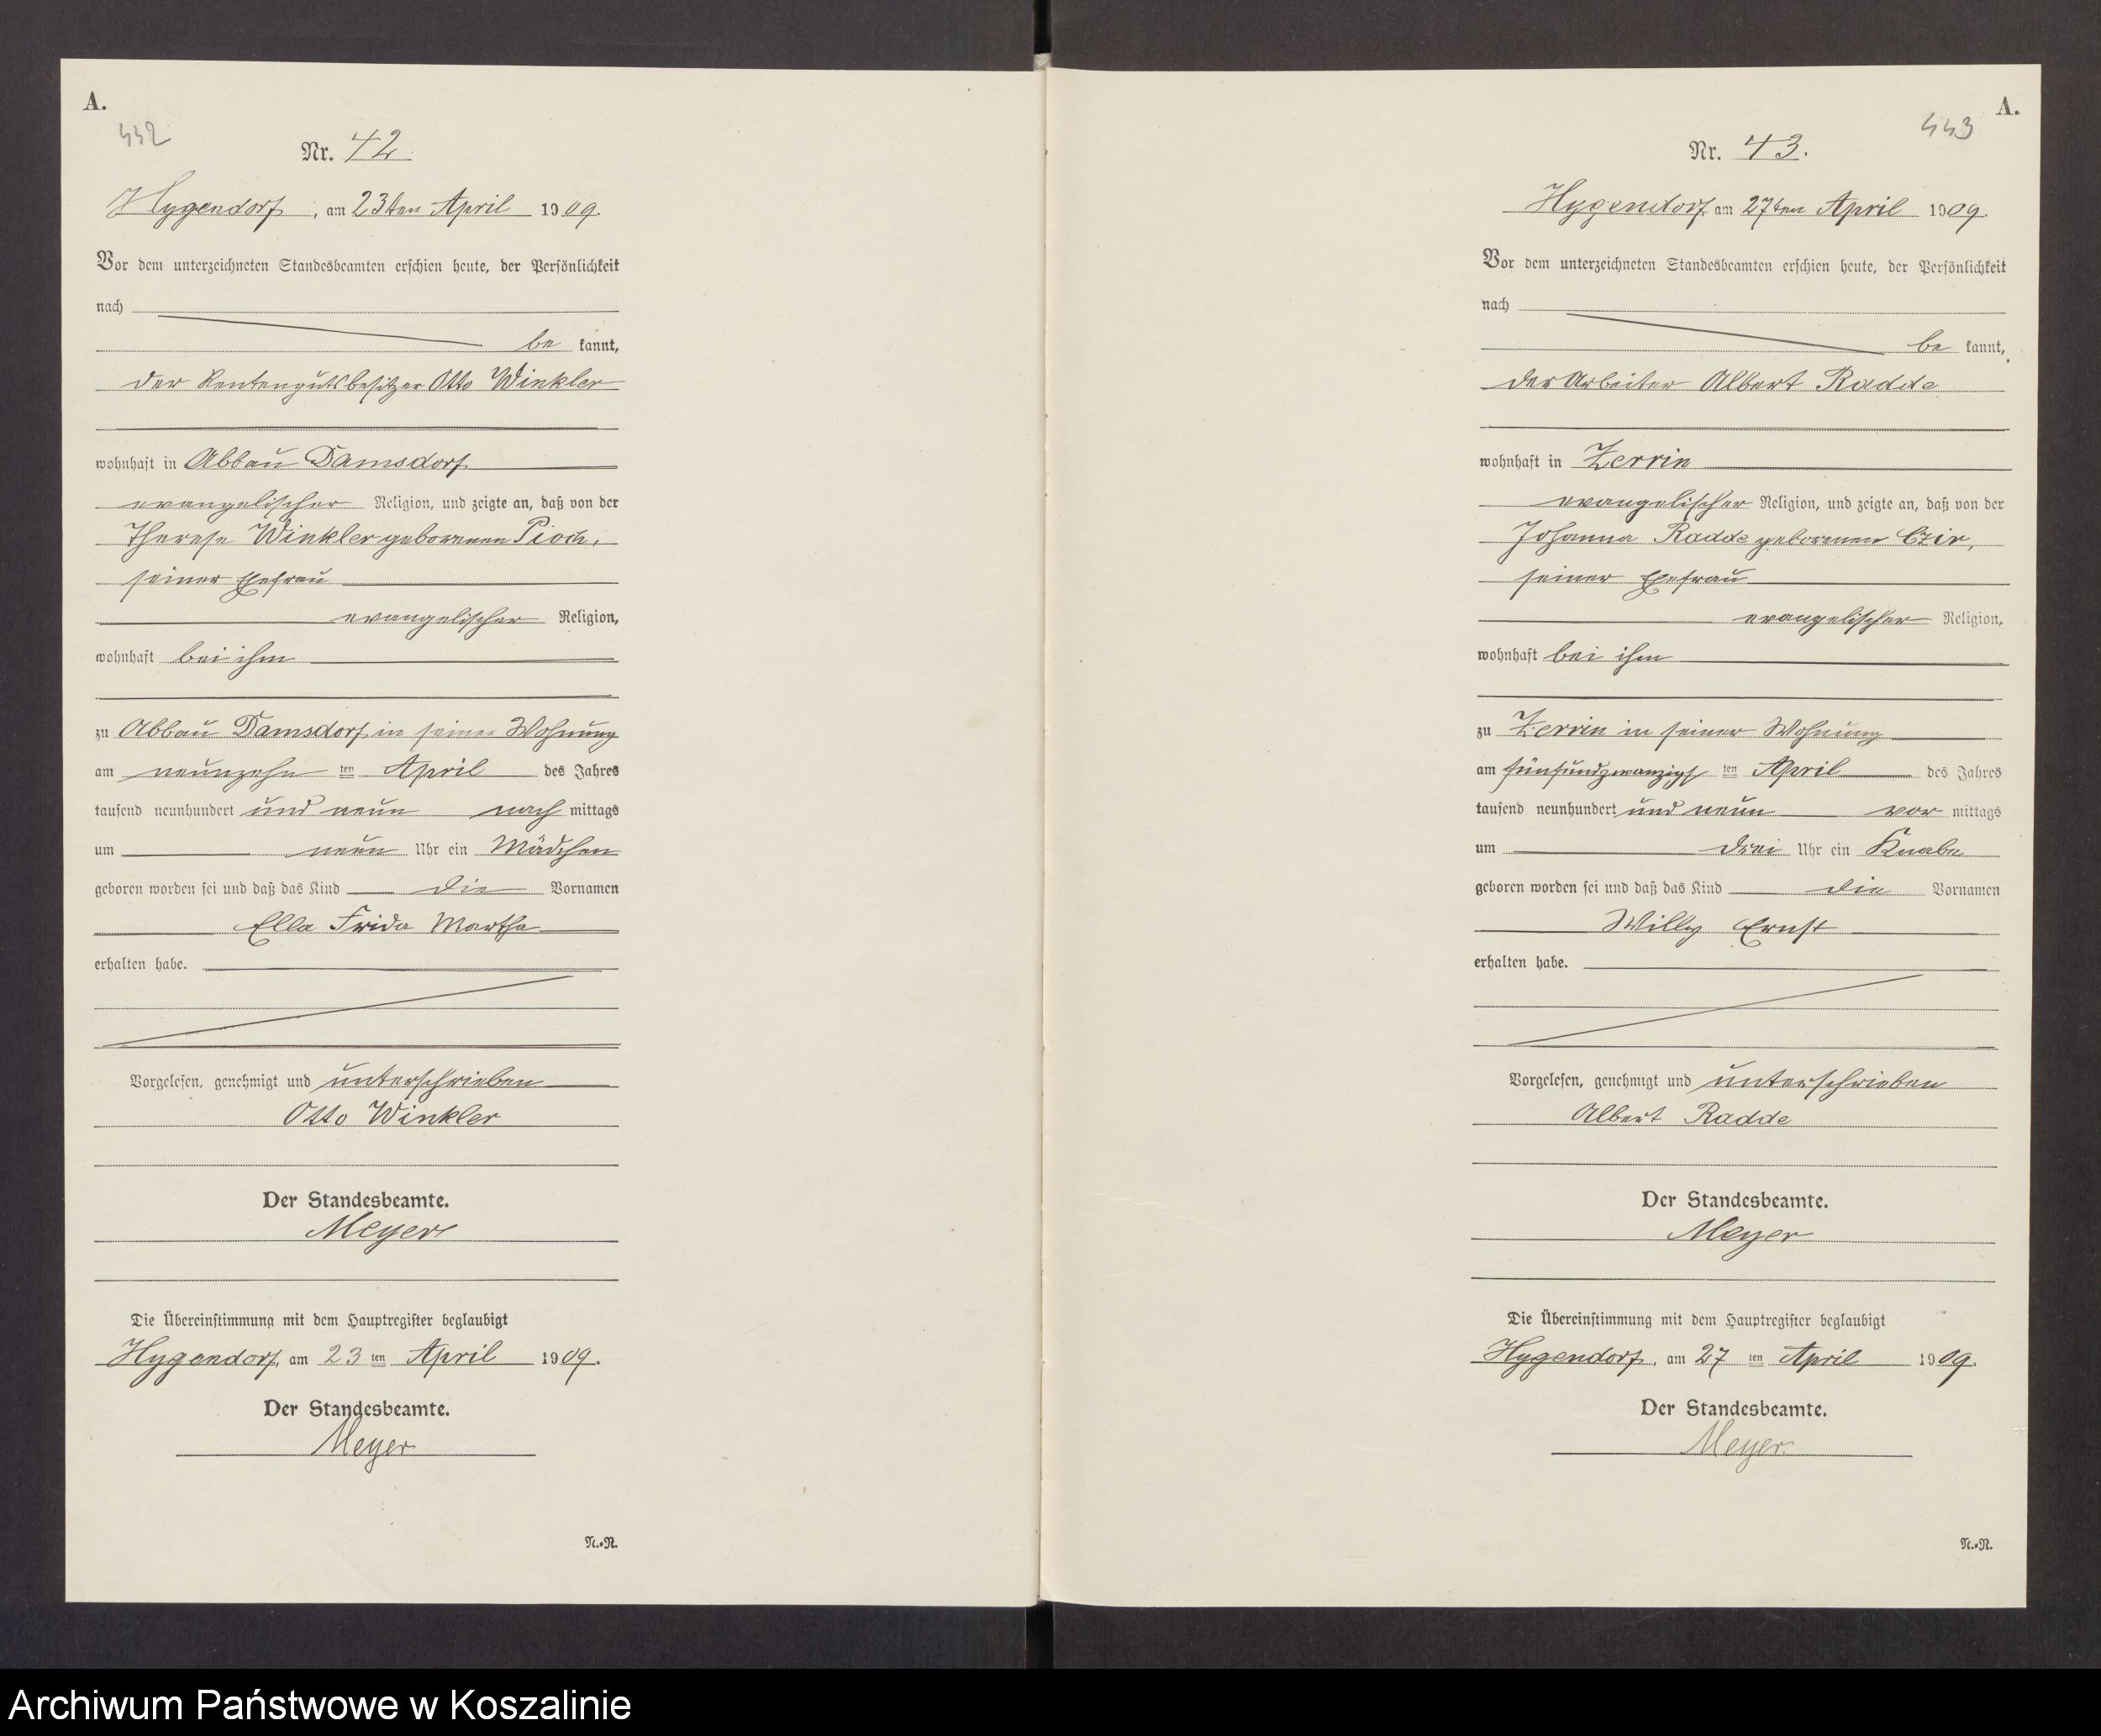 A.
442
Nr. 42.
Hygendorf, am 23ten April 1909.
Vor dem unterzeichneten Standesbeamten erschien heute, der Persönlichkeit
nach
be kannt,
der Rentengutsbesitzer Otto Winkler
wohnhaft in Abbau Damsdorf
evangelischer Religion, und zeigte an, daß von der
Therese Winkler geborenen Pioch,
seiner Ehefrau
evangelischer Religion,
wohnhaft bei ihm
zu Abbau Damsdorf in seiner Wohnung
am neunzehn ten April des Jahres
tausend neunhundert und neun nach mittags
um neun Uhr ein Mädchen
geboren worden sei und daß das Kind die Vornamen
Ella Frida Martha
erhalten habe.
Vorgelesen, genehmigt und unterschrieben
Otto Winkler
Der Standesbeamte.
Meyer
Die Übereinstimmung mit dem Hauptregister beglaubigt
Hygendorf, am 23 ten April 1909.
Der Standesbeamte.
Meyer
N.-N.
A.
443
Nr. 43.
Hygendorf, am 27ten April 1909.
Vor dem unterzeichneten Standesbeamten erschien heute, der Persönlichkeit
nach
be kannt,
der Arbeiter Albert Radde
wohnhaft in Zerrin
evangelischer Religion, und zeigte an, daß von der
Johanna Radde geborenen Czir,
seiner Ehefrau
evangelischer Religion,
wohnhaft bei ihm
zu Zerrin in seiner Wohnung
am fünfundzwanzigs ten April des Jahres
tausend neunhundert und neun vor mittags
um drei Uhr ein Knabe
geboren worden sei und daß das Kind die Vornamen
Willy Ernst
erhalten habe.
Vorgelesen, genehmigt und unterschrieben
Albert Radde
Der Standesbeamte.
Meyer
Die Übereinstimmung mit dem Hauptregister beglaubigt
Hygendorf, am 27 ten April 1909.
Der Standesbeamte.
Meyer.
N.-N.
Archiwum Państwowe w Koszalinie